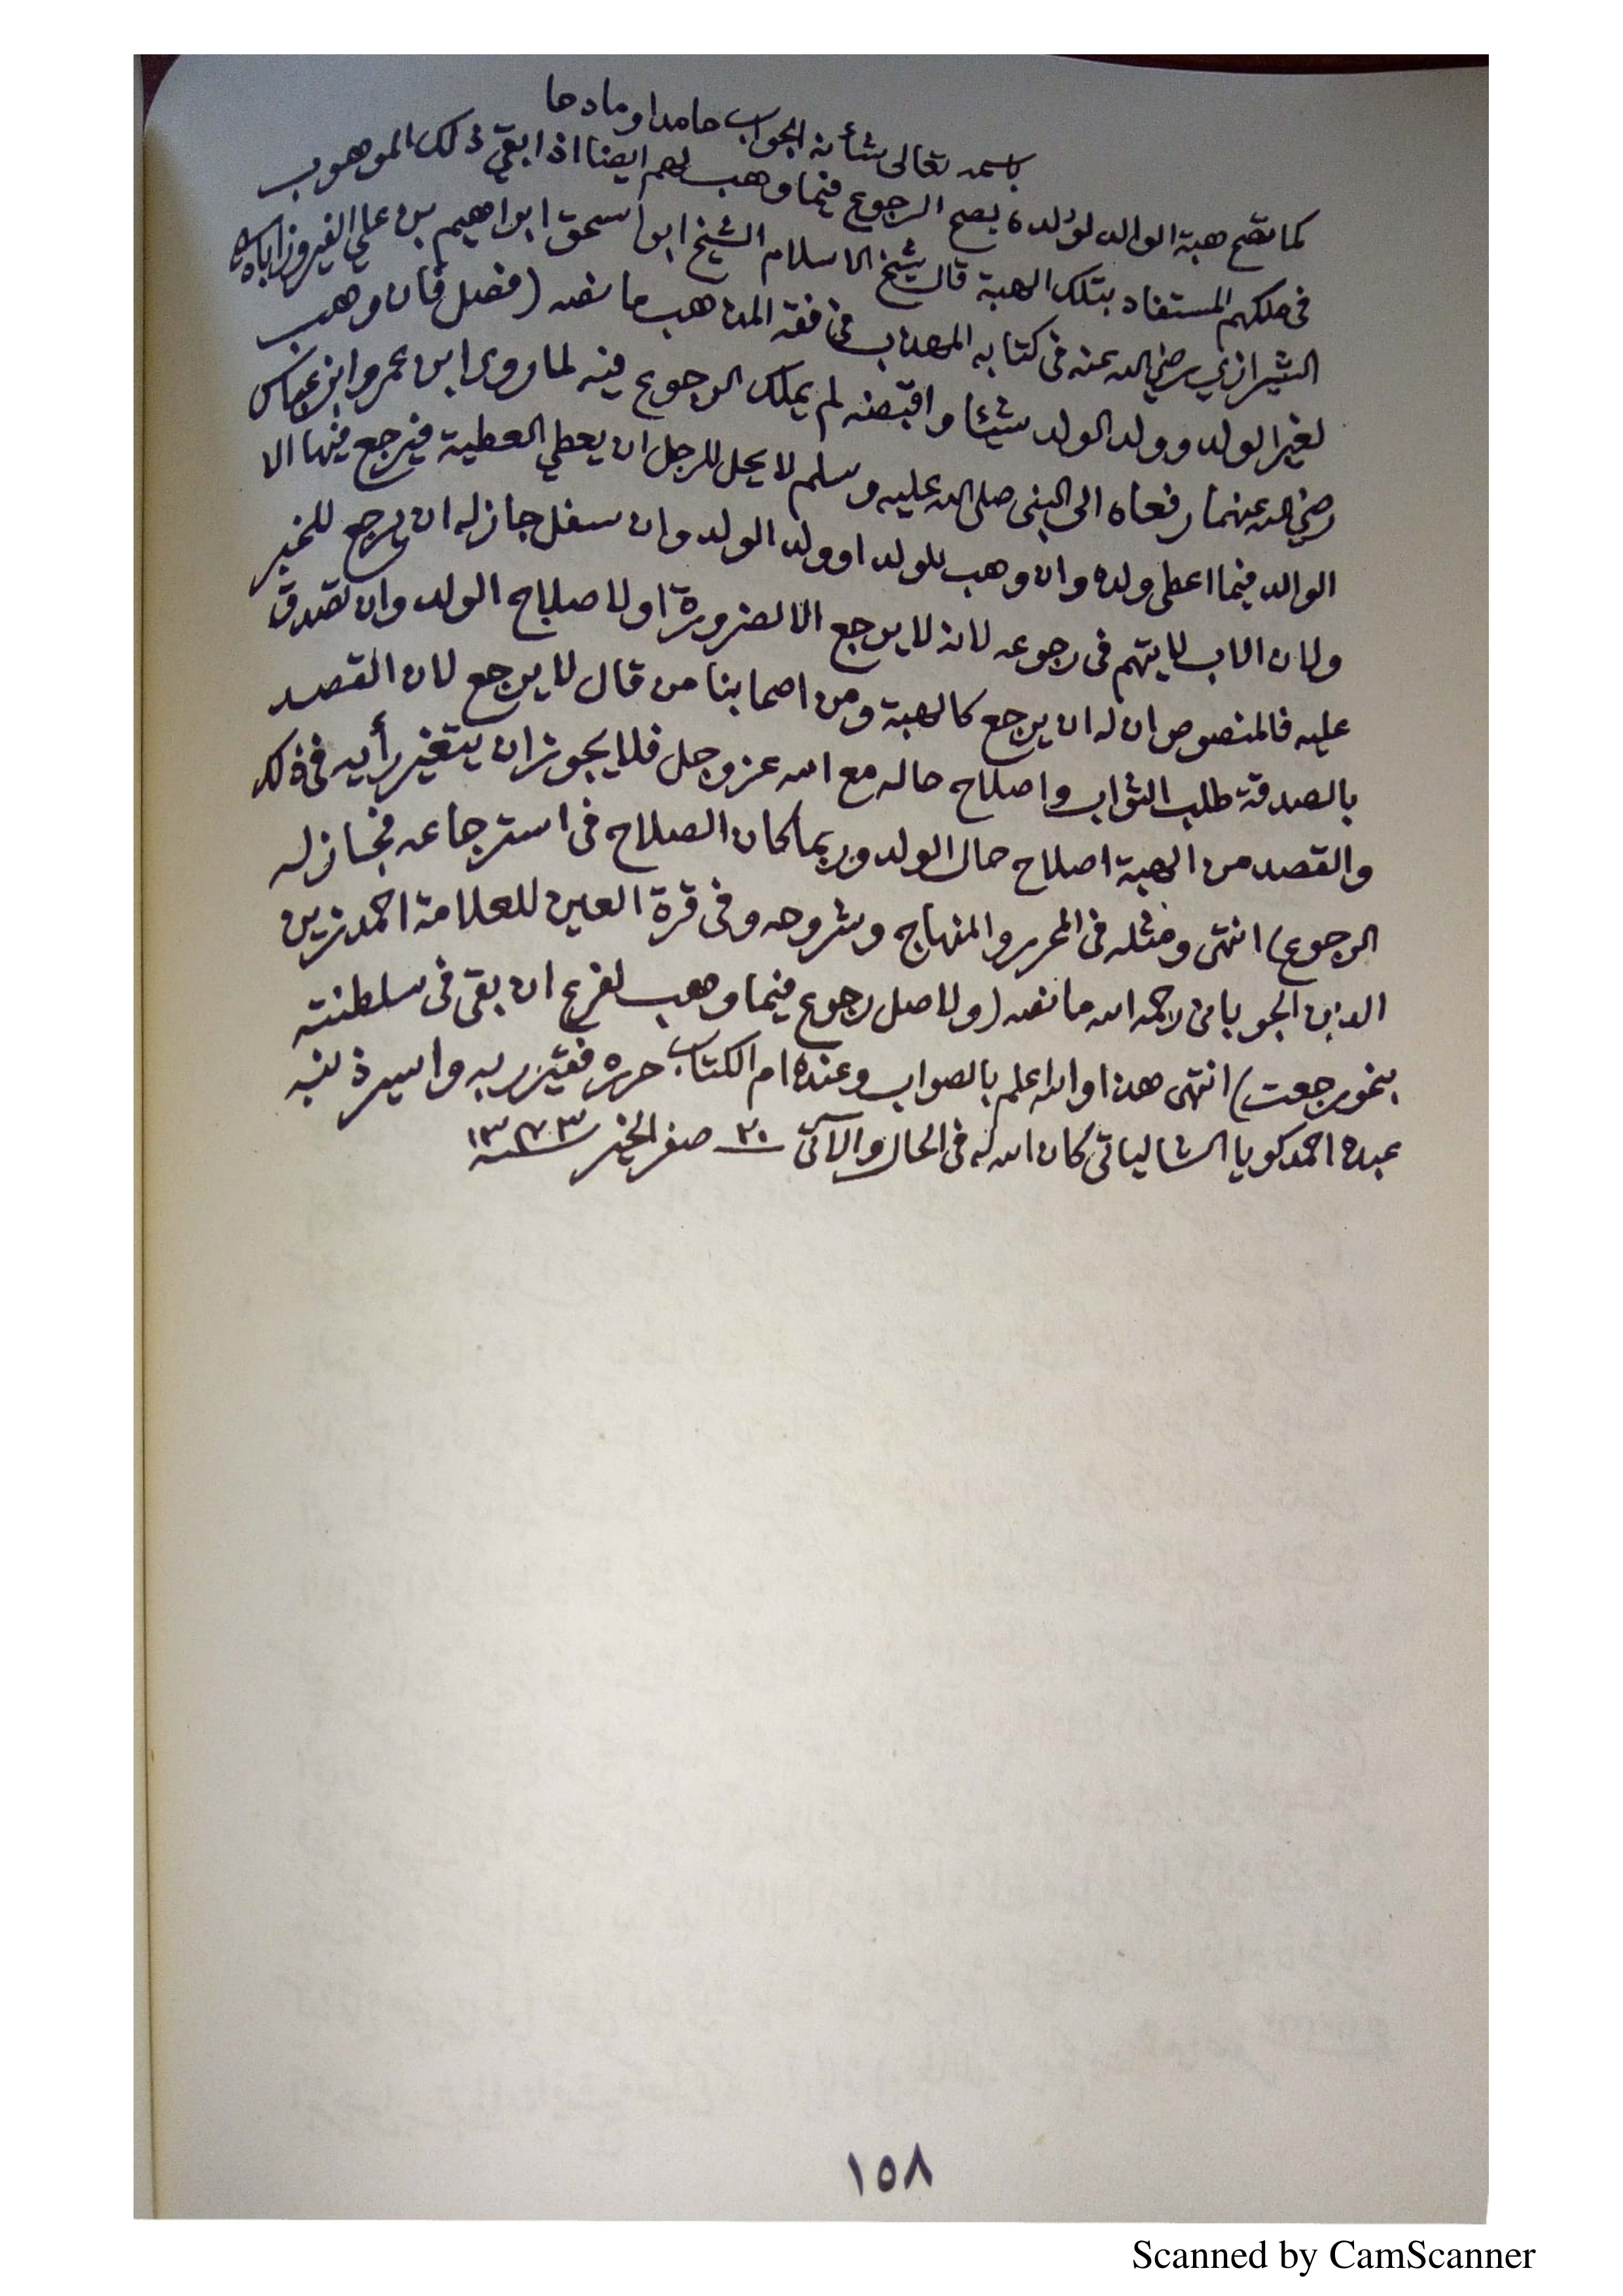 باسمه تعالى شأنه الجواب حامدا ومادحا
كما تصح هبة الوالد لولده يصح الرجوع فيما وهب لهم ايضا اذا بقي ذلك الموهوب
فى ملكهم المستفاد بتلك الهبة قال شيخ الاسلام الشيخ ابو اسحق ابراهيم بن علي الفيروزابادي
الشيرازي رضي الله عنه فى كتابه المهذب فى فقه المذهب ما نصه (فصل فان وهب
لغير الولد وولد الولد شيئا واقبضه لم يملك الرجوع فيه لما روى ابن عمر وابن عباس
رضي الله عنهما رفعاه الى النبى صلى الله عليه وسلم لا يحل للرجل ان يعطي العطية فيرجع فيها الا
الوالد فيما اعطى ولده وان وهب للولد او ولد الولد وان سفل جاز له ان يرجع للخبر
ولان الاب لا يتهم فى رجوعه لانه لا يرجع الا لضرورة او لاصلاح الولد وان تصدق
عليه فالمنصوص ان له ان يرجع كالهبة ومن اصحابنا من قال لا يرجع لان القصد
بالصدقة طلب الثواب واصلاح حاله مع الله عز وجل فلا يجوز ان يتغير رأيه فى ذلك
والقصد من الهبة اصلاح حال الولد وربما كان الصلاح فى استرجاعه فجاز له
الرجوع) انتهى ومثله فى المحرر والمنهاج وشروحه وفى قرة العين للعلامة احمد زين
الدين الجويامى رحمه الله ما نصه (ولاصل رجوع فيما وهب لفرع ان بقى فى سلطنته
بنحو رجعت) انتهى هذا والله اعلم بالصواب وعنده ام الكتاب حرره فقير ربه واسير ذنبه
عبده احمد كويا الشالياتى كان الله له فى الحال والآتى ٢٠ صفر الخير سنة ١٣٧٣
١٥٨
Scanned by CamScanner